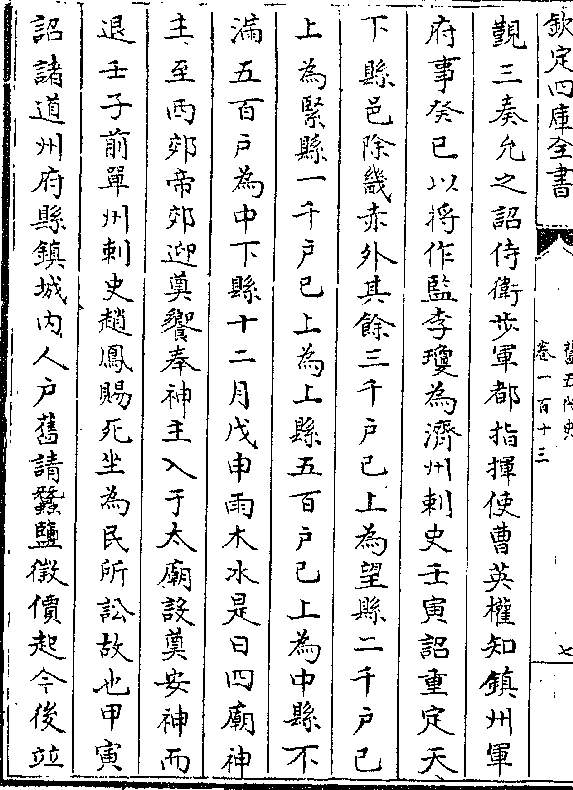 欽定四庫全書
舊五代史
卷一百十三
七
覲三奏允之詔侍衛步軍都指揮使曹英權知鎮州軍
府事癸已以將作監李瓊為濟州刺史壬寅詔重定天
下縣邑除畿赤外其餘三千户已上為望縣二千户已
上為緊縣一千户已上為上縣五百户已上為中縣不
滿五百户為中下縣十二月戊申雨木氷是日四廟神
主至西郊帝郊迎奠饗奉神主入于太廟設奠安神而
退壬子前單州刺史趙鳳賜死坐為民所訟故也甲寅
詔諸道州府縣鎮城内人户舊請蠶鹽徵價起今後竝